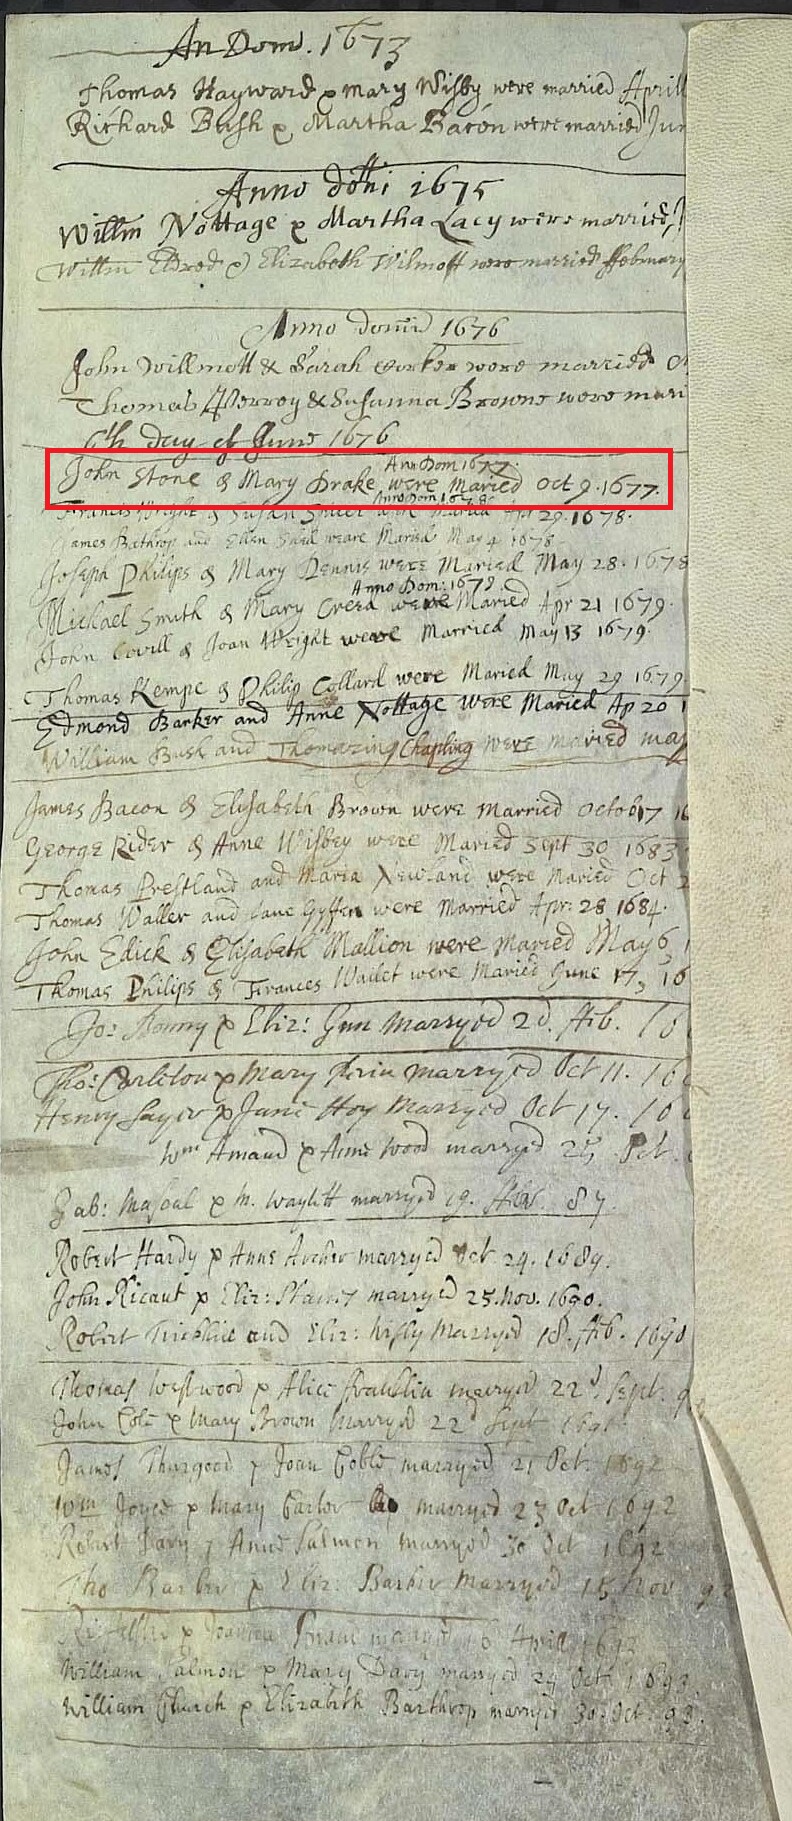 An Dom. 1673
Thomas Hayward & Mary Wisby were married Aprill
Richard Bush & Martha Bacon were married Jun
Anno dom̄i 1675
Willm Nottage & Martha Lacy were married
Willm Eldred & Elizabeth Wilmott were married ffebruary
Anno domi 1676
John Willmott & Sarah were married
Thomas & Susanna Browne were mari
6th day of June 1676
Ann Dom 1677
John Stone & Mary Drake were Maried Oct 9. 1677.
Anno Dom 1678
Francis Wright & Susan were Maried Apr 29. 1678.
James Bathrop and Ellen weare Maried May 4 1678
Joseph Philips & Mary Dennis were Maried May 28. 1678
Anno Dom: 1679.
Michael Smith & Mary Creed were Maried Apr 21 1679.
John Covill & Joan Wright were Married May 13 1679.
Thomas Kempe & Philip Collard were Maried May 29 1679.
Edmond Barker and Anne Nottage were Maried Ap 20 1
William Bush and Thomazing Chapling were maried may
James Bacon & Elisabeth Brown were Married Octob 17 16
George Rider & Anne Wisbey were Maried Sept 30 1683
Thomas Prestland and Maria Newland were Maried Oct 2
Thomas Waller and Jane were Married Apr: 28 1684.
John Edick & Elisabeth Mallion were Maried May 6, 1
Thomas Philips & Frances Wallet were Maried June 17, 16
Jo: Bonny & Eliz: Gun Marryed 2d. ffeb. 16
Tho: Carleton & Mary marryed Oct 11. 16
Henry Sayer & Jane Hoy Marryed Oct 17. 16
Wm & Anne Wood marryed 25 Oct.
Gab: & M. Waylett marryed 19. 87.
Robert Hardy & Anne Archer marryed Oct 29. 1689.
John Ricaut & Eliz: marryed 25. Nov. 1690.
Robert and Eliz: Marryed 18. ffeb. 1690
Thomas Westwood & Alice ffranklin marryed 22d. Sept. 9
John Cole & Mary Brown Marryed 22d Sept 169
James Thurgood & Joan Coble marryed 21 Oct. 1692
Wm Joyce & Mary Carter marryed 23 Oct 1692
Robert Davy & Anne Salmon marryed 30 Oct 1692
Tho Barber & Eliz: Barker Marryed 15 Nov 92
& Joanna marryed 16 Aprill 1693
William Salmon & Mary Davy marryed 29 Oct 1693.
William Church & Elizabeth Barthrop marryed 30. Oct. 93.